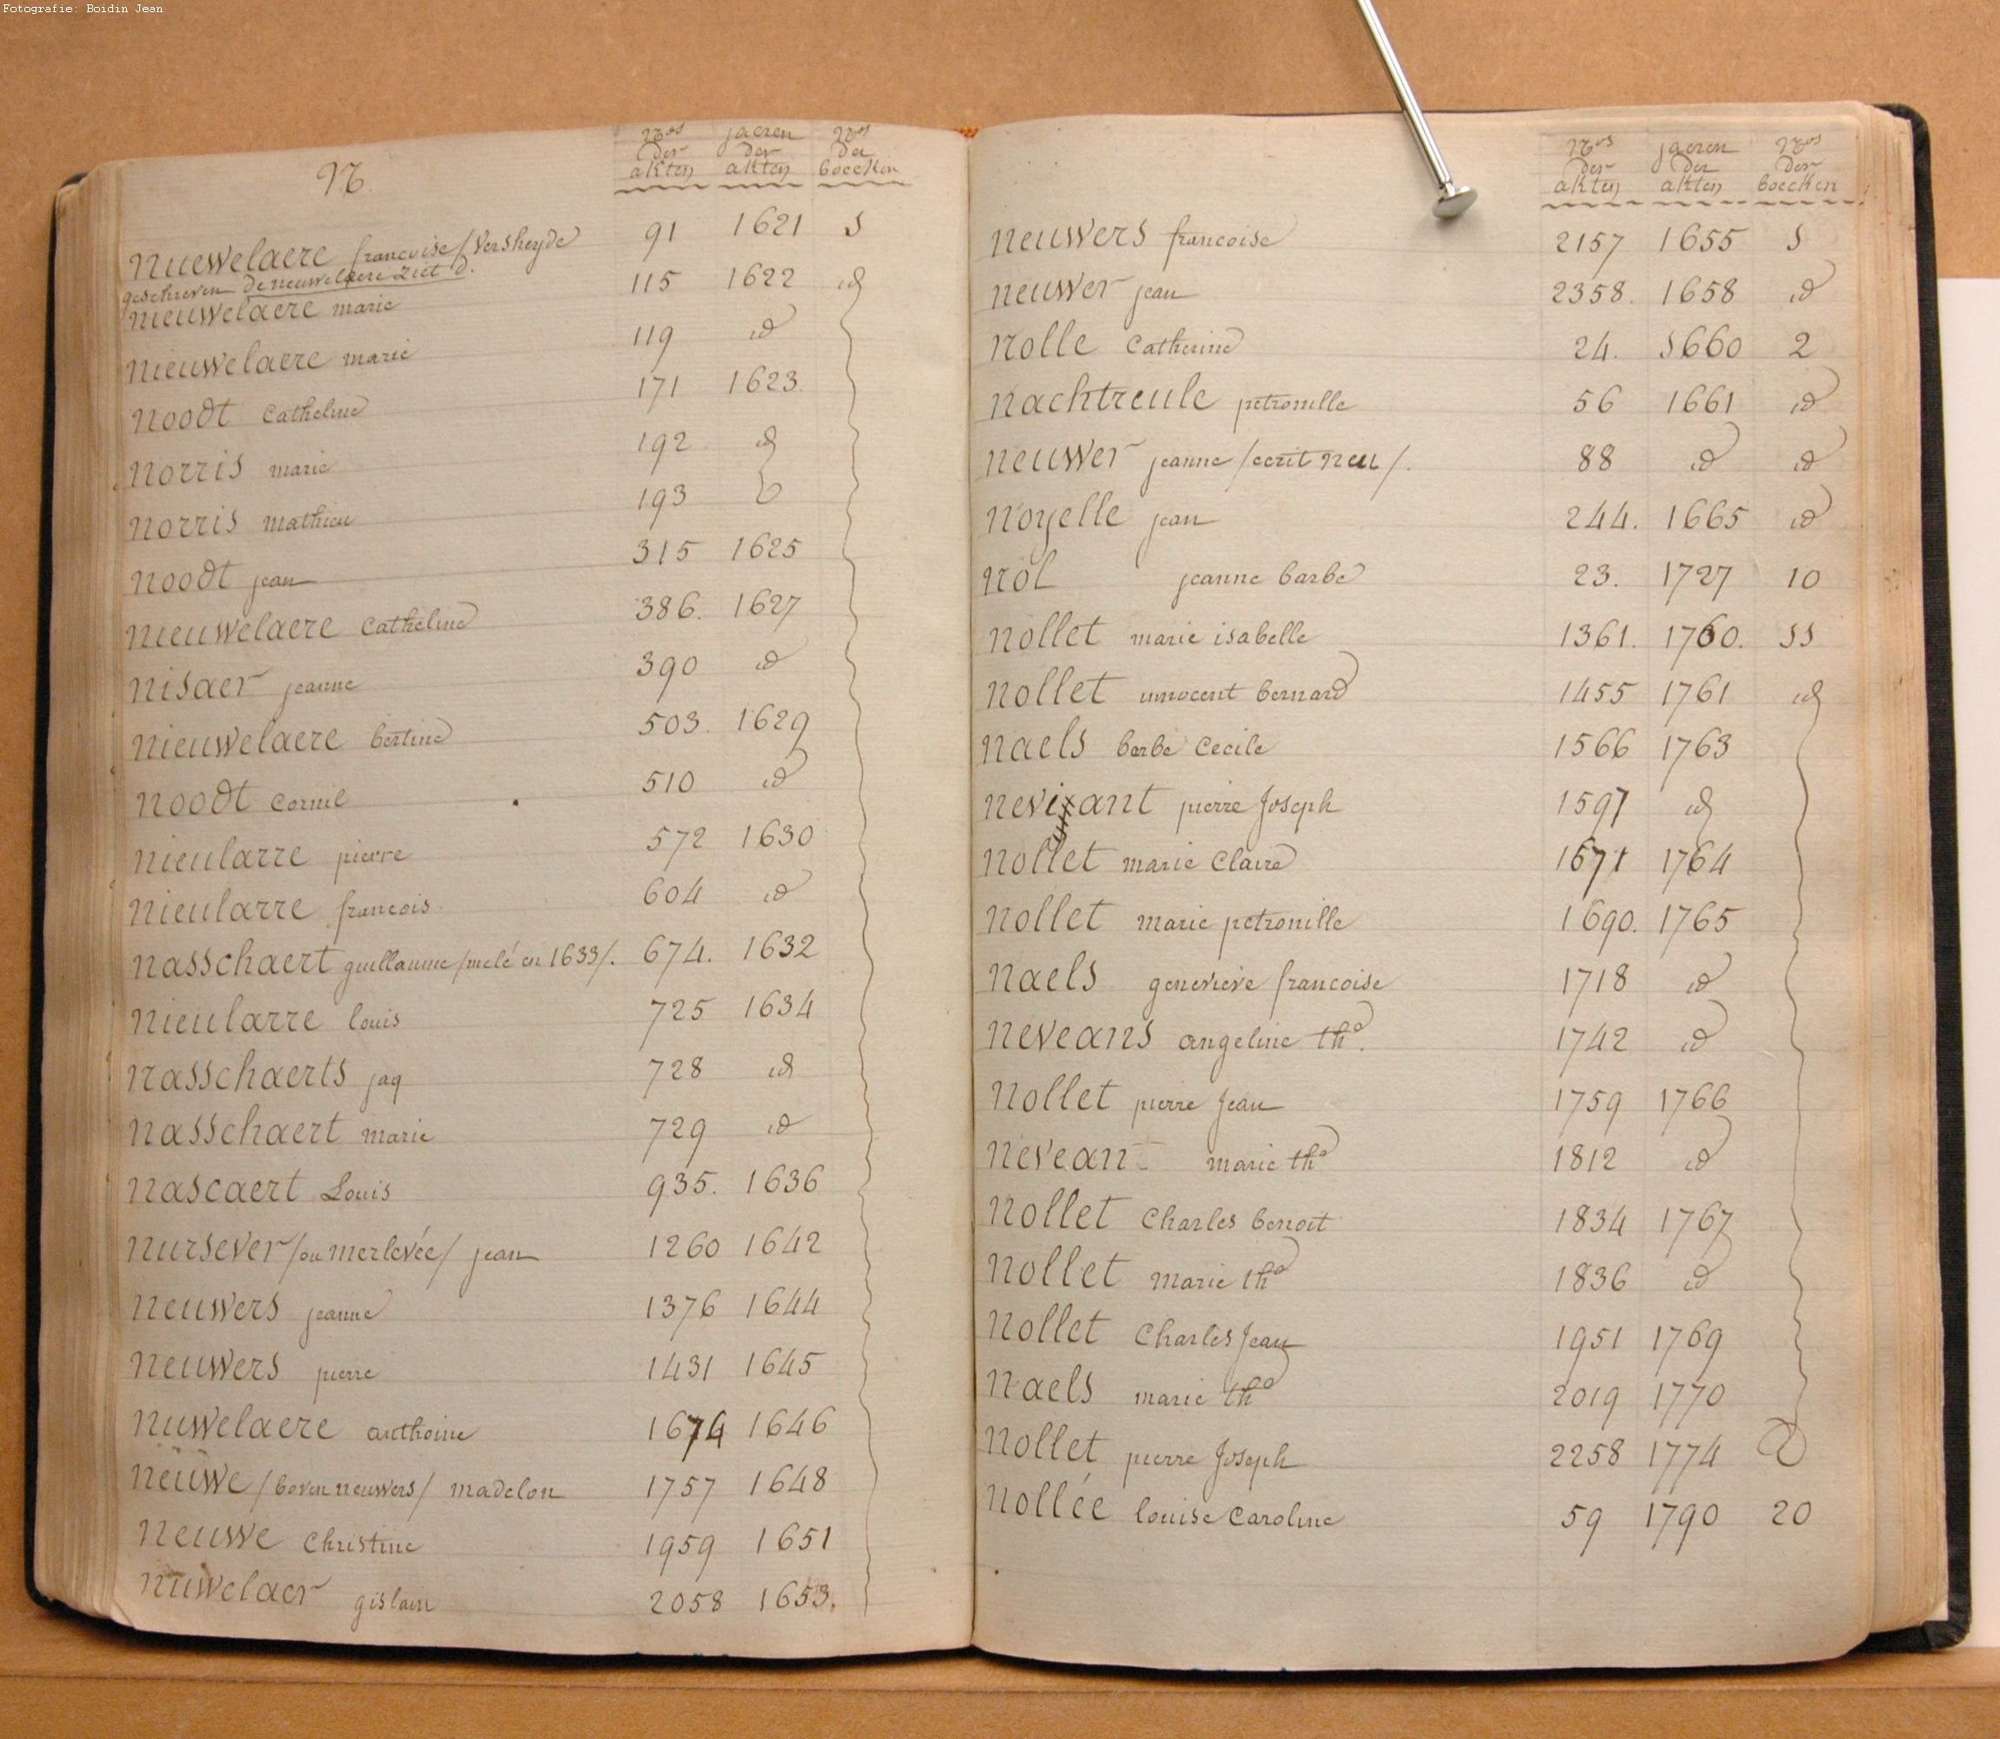 Fotografie: Boidin Jean
N Nos der akten jaeren der akten Nos der boecken
Nuewelaere francoise / Versheyde 91 1621 1
geschreven De neuwelaere ziet D.
Nieuwelaere marie 115 1622 id
Nieuwelaere marie 119 id
Noodt Catheline 171 1623.
Norris marie 192 id
Norris mathieu 193
Noodt jean 315 1625
Nieuwelaere Catheline 386. 1627
Nisaer jeanne 390 id
Nieuwelaere bertine 503. 1629
Noodt Cornil 510 id
Nieularre pierre 572 1630
Nieularre francois 604 id
Nasschaert guillaume / melé en 1633 /. 674. 1632
Nieularre louis 725 1634
Nasschaerts jaq 728 id
Nasschaert marie 729 id
Nascaert Louis 935. 1636
Nursever / ou merlevée / jean 1260 1642
Neuwers jeanne 1376 1644
Neuwers pierre 1431 1645
Nuwelaere anthoine 1674 1646
Neuwe / boven neuwers / madelon 1757 1648
Neuwe Christine 1959 1651
Nuwelaer gislain 2058 1653.
Nos der akten jaeren der akten Nos der boecken
Neuwers francoise 2157 1655 1
Neuwer jean 2358. 1658 id
Nolle Catherine 24. 1660 2
Nachtreule petronille 56 1661 id
Neuwer jeanne / ecrit neu /. 88 id id
Noyelle jean 244. 1665 id
Nol jeanne barbe 23. 1727 10
Nollet marie isabelle 1361. 1760. 11
Nollet innocent bernard 1455 1761 id
Naels barbe Cecile 1566 1763
Nevixant pierre Joseph 1597 id
Nollet marie Claire 1671 1764
Nollet marie petronille 1690. 1765
Naels genevieve francoise 1718 id
Neveans angeline the. 1742 id
Nollet pierre Jean 1759 1766
Nevean marie the 1812 id
Nollet Charles benoit 1834 1767
Nollet Marie the 1836 id
Nollet Charles Jean 1951 1769
Naels marie the 2019 1770
Nollet pierre Joseph 2258 1774
Nollée louise Caroline 59 1790 20